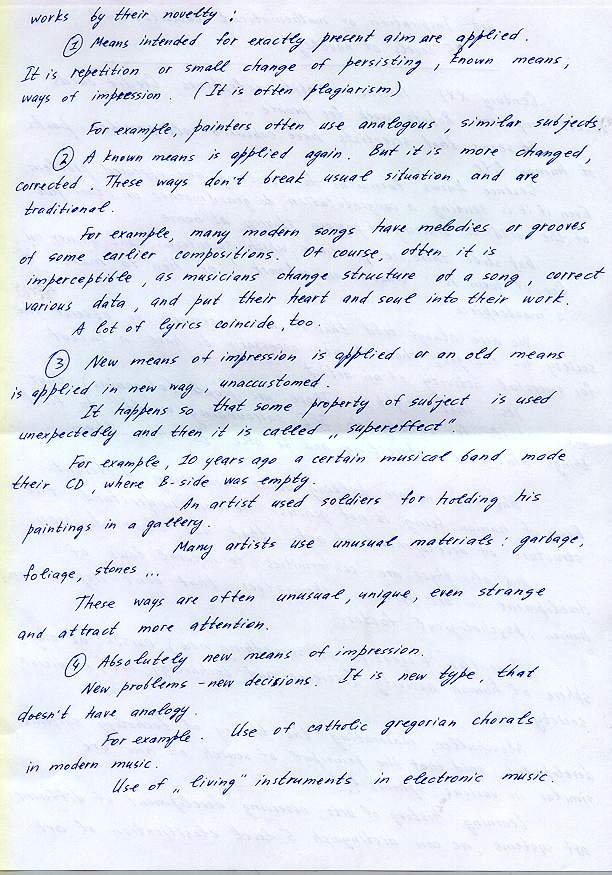 works by their novelty :
① Means intended for exactly present aim are applied.
It is repetition or small change of persisting, known means,
ways of impression. (It is often plagiarism)
For example, painters often use analogous, similar subjects.
② A known means is applied again. But it is more changed,
corrected. These ways don't break usual situation and are
traditional.
For example, many modern songs have melodies or grooves
of some earlier compositions. Of course, often it is
imperceptible, as musicians change structure of a song, correct
various data, and put their heart and soul into their work.
A lot of lyrics coincide, too.
③ New means of impression is applied or an old means
is applied in new way, unaccustomed.
It happens so that some property of subject is used
unexpectedly and then it is called „supereffect".
For example, 10 years ago a certain musical band made
their CD, where B-side was empty.
An artist used soldiers for holding his
paintings in a gallery.
Many artists use unusual materials: garbage,
foliage, stones ...
These ways are often unusual, unique, even strange
and attract more attention.
④ Absolutely new means of impression.
New problems - new decisions. It is new type, that
doesn't have analogy.
For example. Use of catholic gregorian chorals
in modern music.
Use of „living" instruments in electronic music.